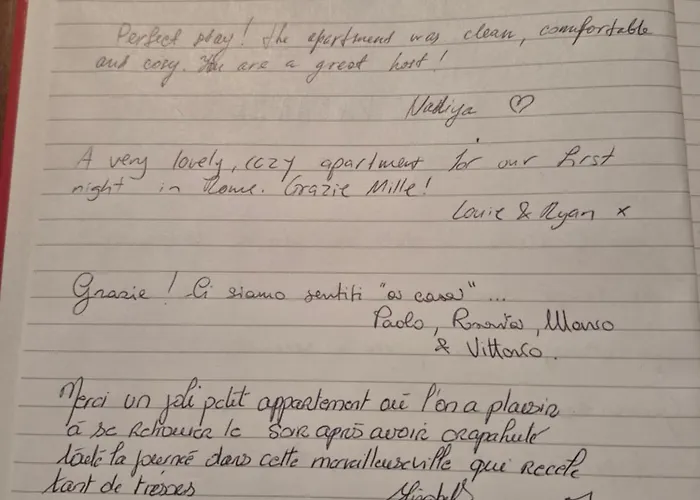 Perfect stay! The apartment was clean, comfortable
and cosy. You are a great host!
Nadiya ♡
A very lovely, cozy apartment for our first
night in Rome. Grazie Mille!
Louie & Ryan x
Grazie! Ci siamo sentiti "a casa" ...
Paolo, , 
& Vittorio.
Merci un joli petit appartement où l'on a plaisir
à se retrouver le soir après avoir crapahuté
toute la journée dans cette merveilleuse ville qui recèle
tant de trésors